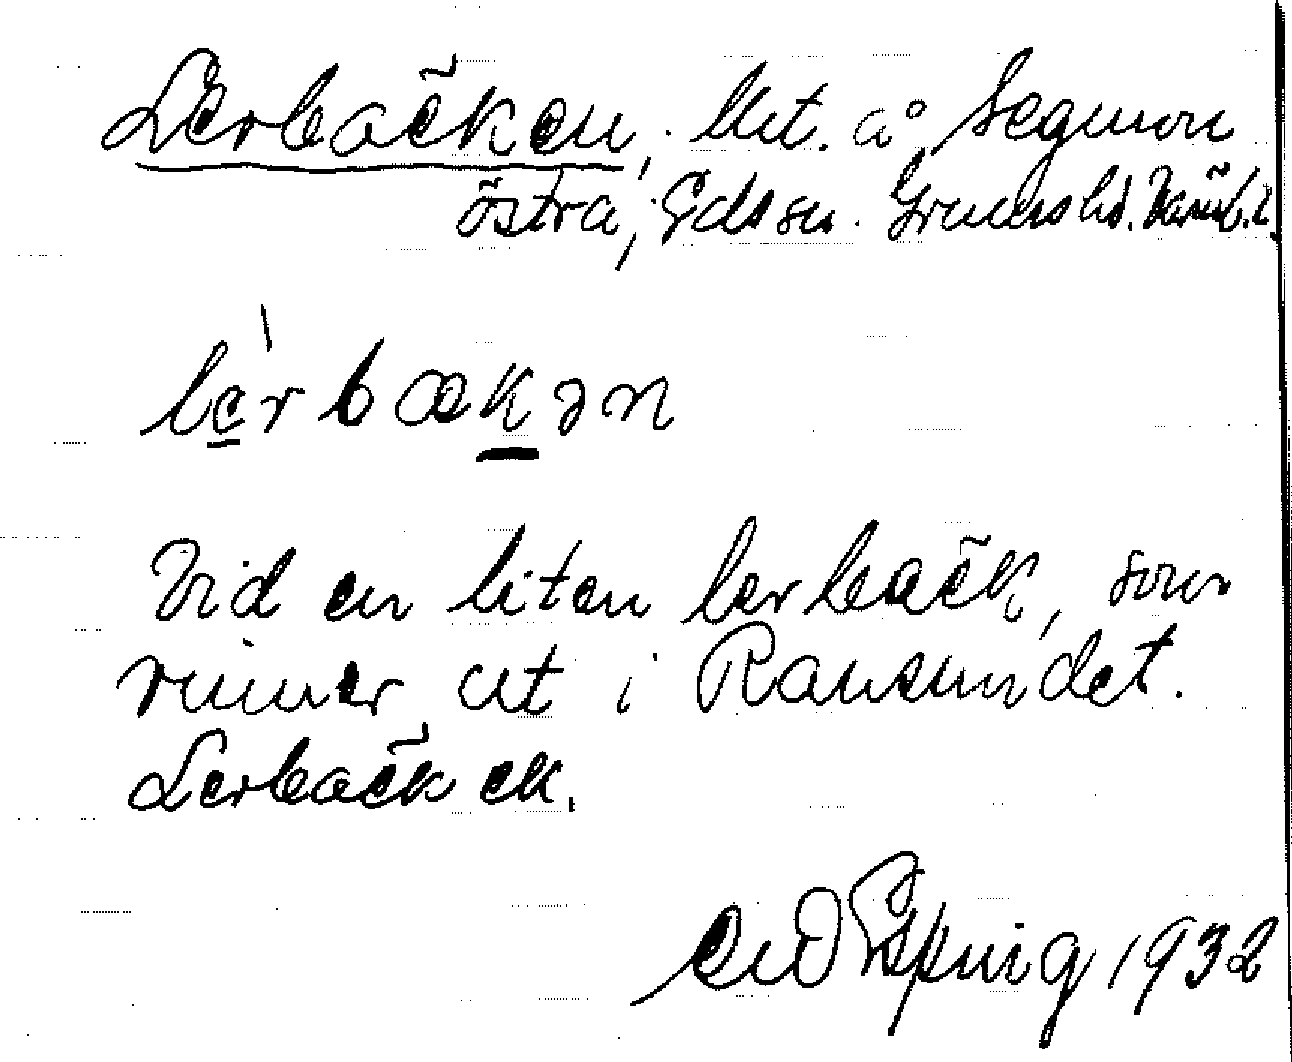 Lerbäcken, Utt. å Segmon
östra, Eds sn. Grums hd. Värml. l.
le̱`rbæḵən
Vid en liten lerbäck, som
rinner ut i Ransundet.
Lerbäck ek.
1932